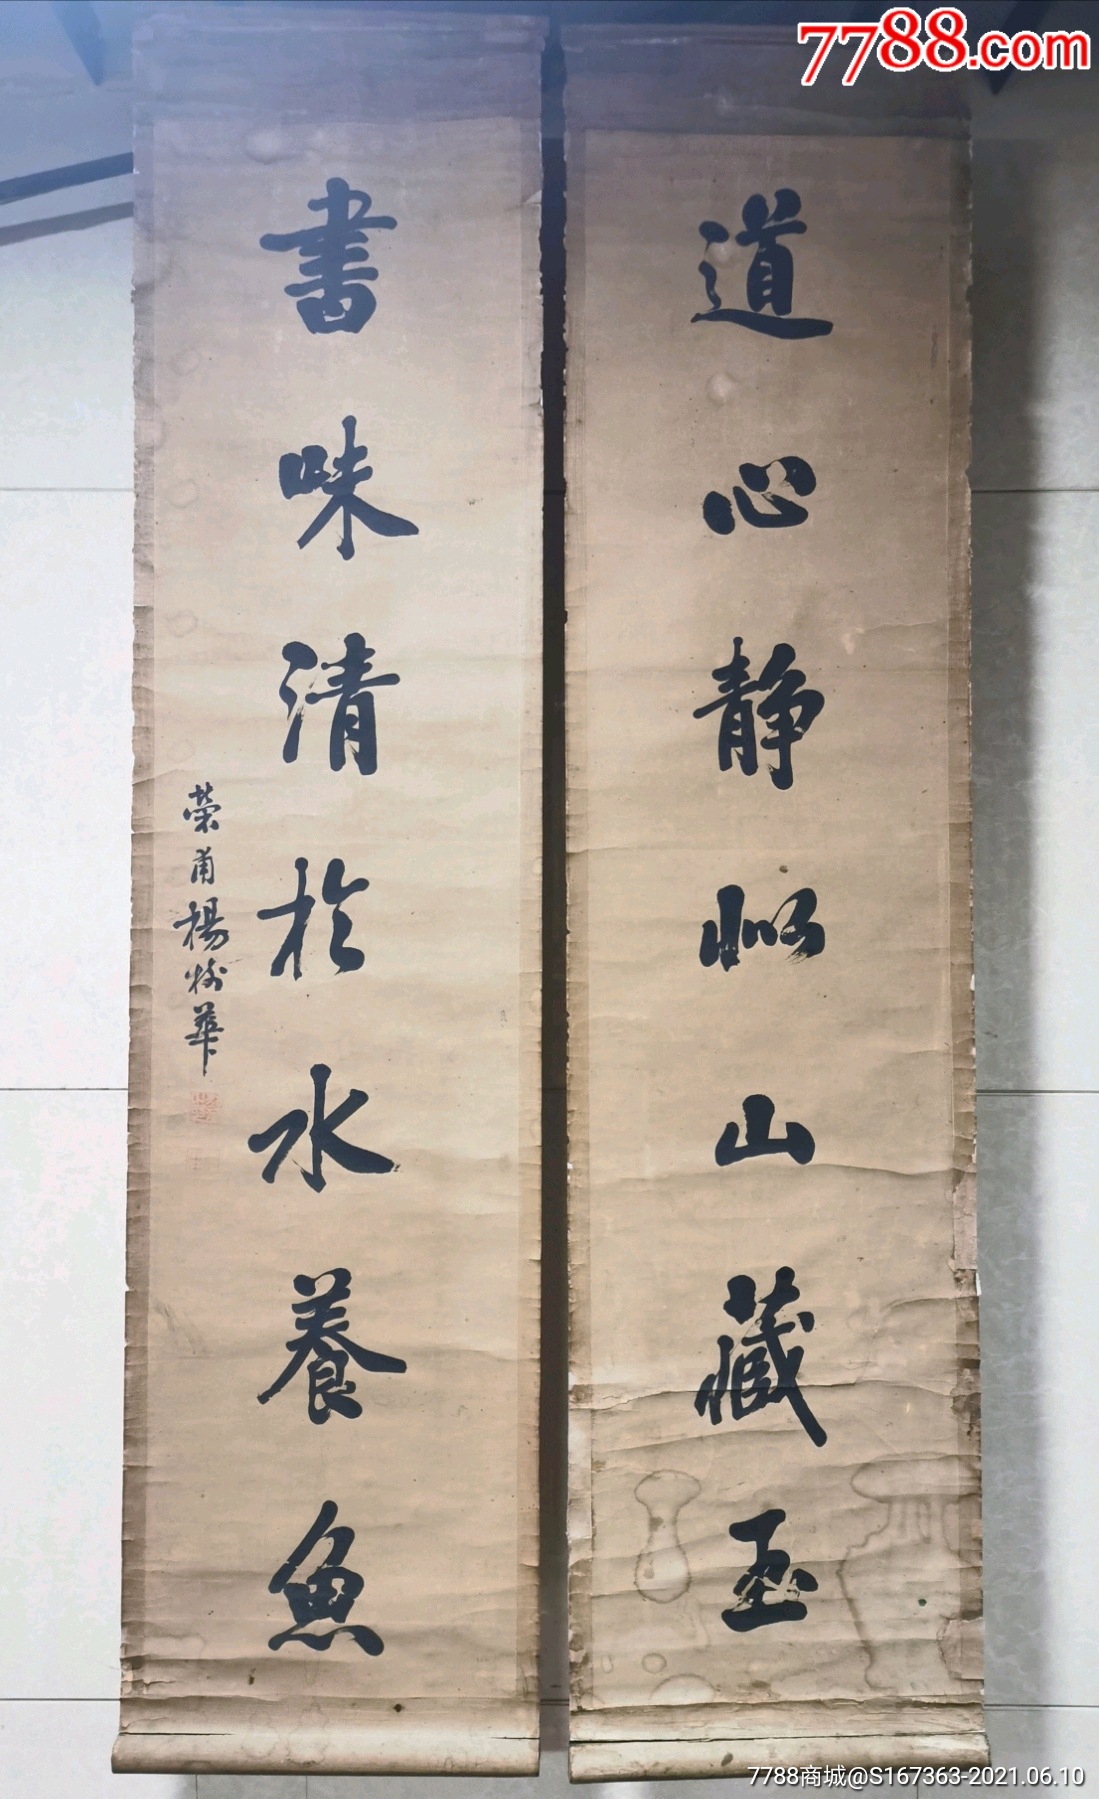 7788.com
道心静似山藏玉
書味清於水養魚
荣甫楊樹華
7788商城@S167363-2021.06.10